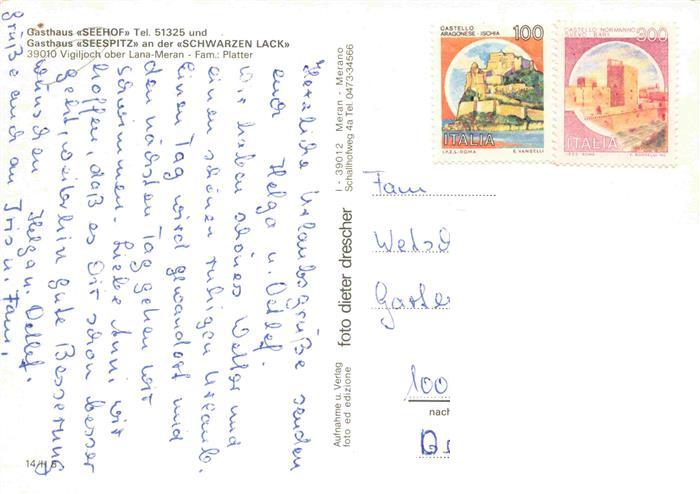 Gasthaus «SEEHOF» Tel. 51325 und
Gasthaus «SEESPITZ» an der «SCHWARZEN LACK»
39010 Vigiljoch ober Lana-Meran - Fam.: Platter
Herzliche Urlaubsgrüße senden
euch Helga u. Detlef.
Wir haben schönes Wetter und
einen schönen ruhigen Urlaub.
Einen Tag wird gewandert und
den nächsten Tag gehen wir
schwimmen. Liebe Anni, wir
hoffen, daß es Dir schon besser
geht, weiterhin gute Besserung
wünschen Helga u. Detlef.
Grüße auch an Iris u. Fam.
14/II
Aufnahme u. Verlag
foto ed edizione
foto dieter drescher
I - 39012 Meran - Merano
Schallhofweg 4a Tel. 0473 34566
CASTELLO
ARAGONESE - ISCHIA
100
ITALIA
I.P.Z.S. - ROMA E. VANGELLI
CASTELLO NORMANNO
SVEVO - BARI
300
ITALIA
I.P.Z.S. - ROMA
Fam
Garte
100
nach